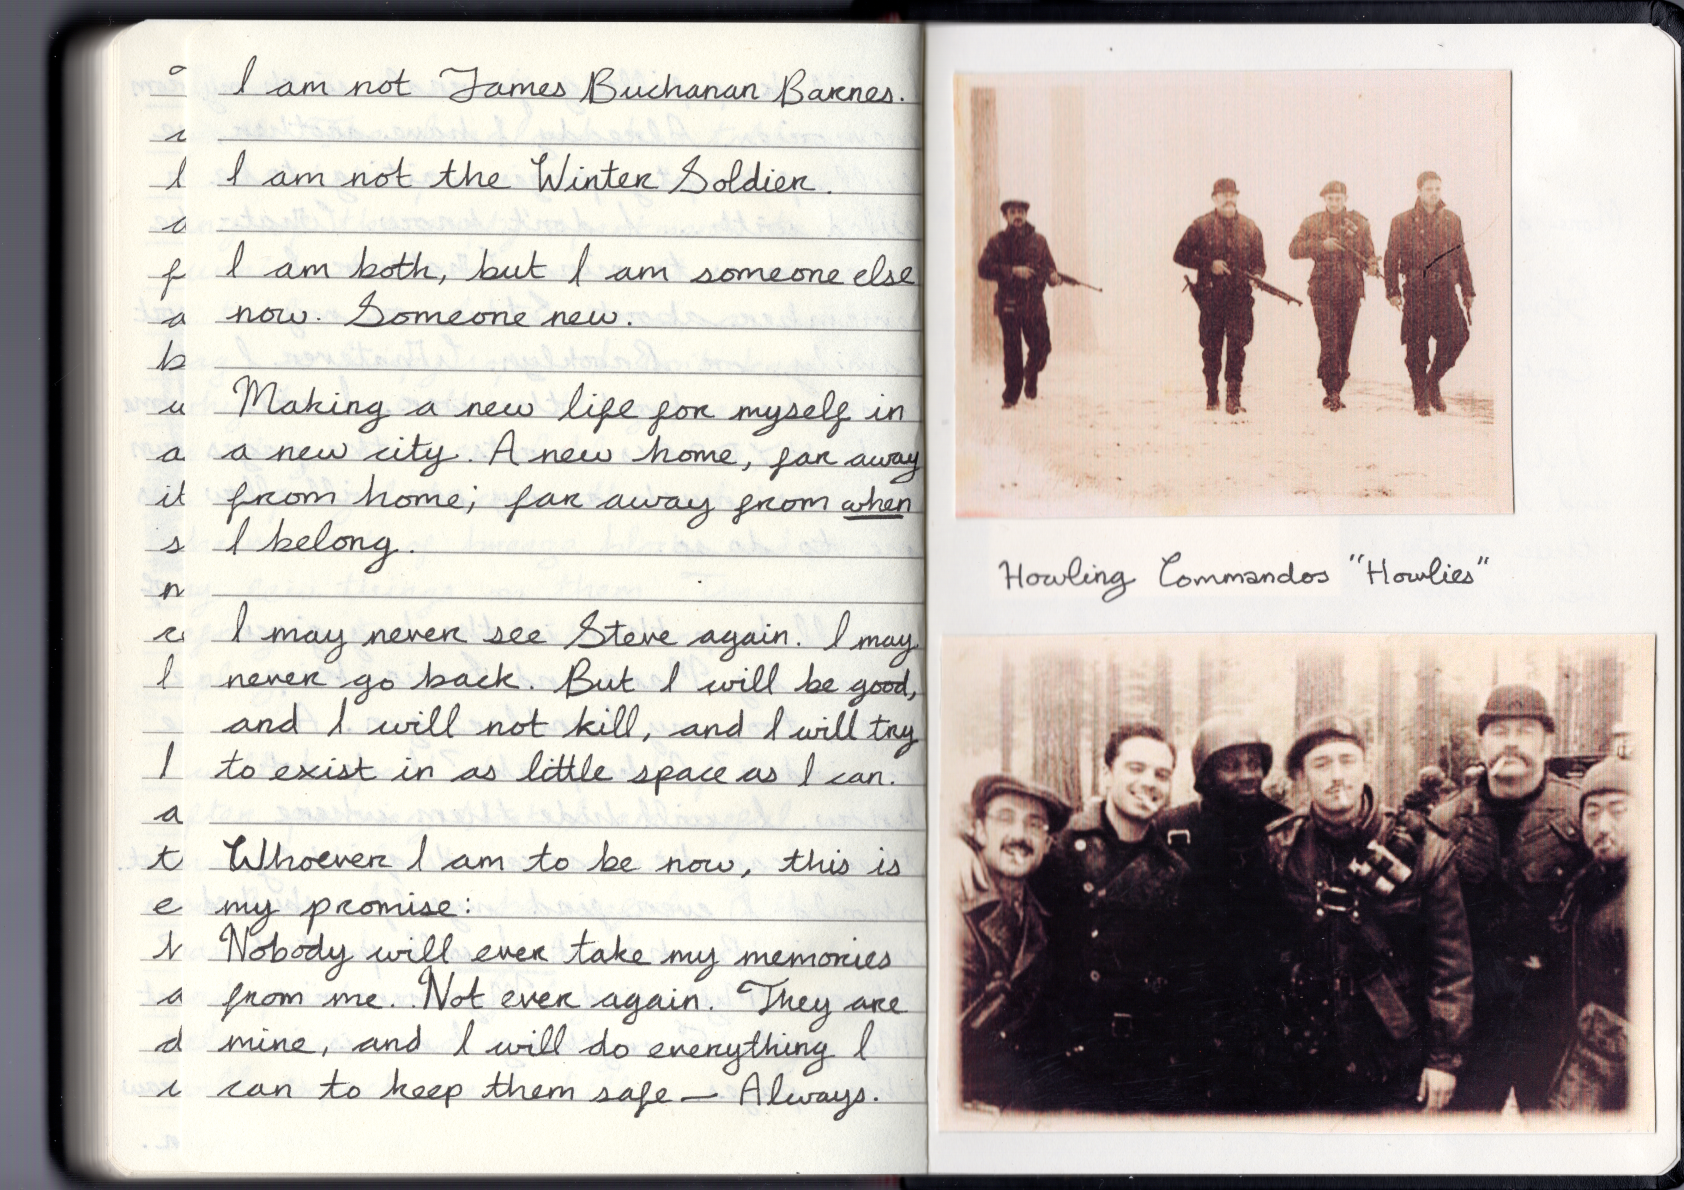 I am not James Buchanan Barnes.
I am not the Winter Soldier.
I am both, but I am someone else
now. Someone new.
Making a new life for myself in
a new city. A new home, far away
from home; far away from when
I belong.
I may never see Steve again. I may
never go back. But I will be good,
and I will not kill, and I will try
to exist in as little space as I can.
Whoever I am to be now, this is
my promise:
Nobody will ever take my memories
from me. Not ever again. They are
mine, and I will do everything I
can to keep them safe — Always.
Howling Commandos "Howlies"